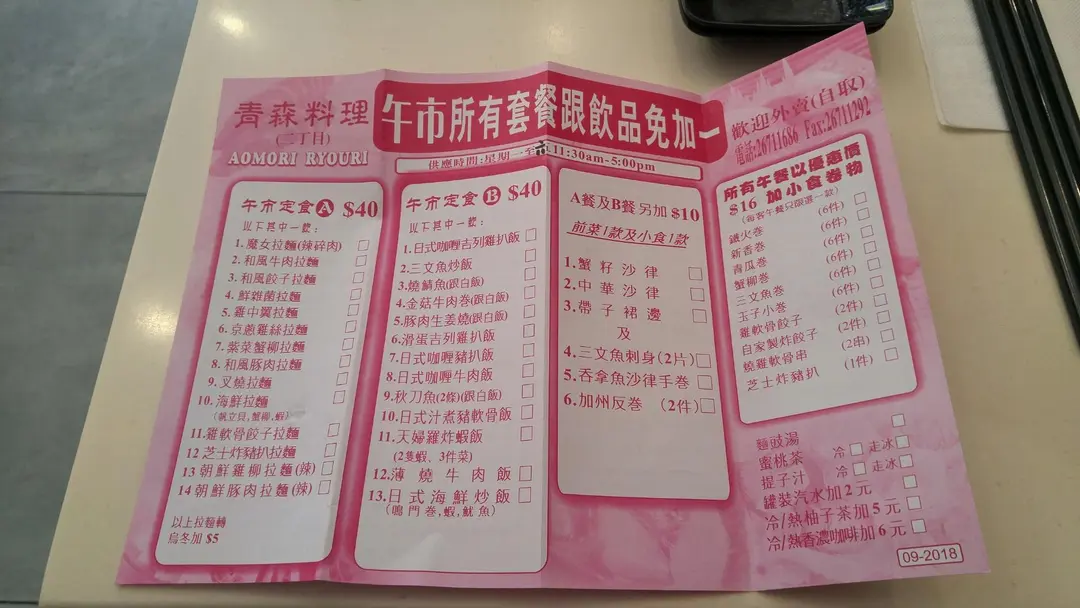 青森料理
(二丁目)
AOMORI RYOURI
午市所有套餐跟飲品免加一
供應時間:星期一至六 11:30am-5:00pm
歡迎外賣(自取)
電話:26711686 Fax:26711292
午市定食A $40
以下其中一款:
1.魔女拉麵(辣碎肉)
2.和風牛肉拉麵
3.和風餃子拉麵
4.鮮雜菌拉麵
5.雞中翼拉麵
6.京蔥雞絲拉麵
7.紫菜蟹柳拉麵
8.和風豚肉拉麵
9.叉燒拉麵
10.海鮮拉麵
(帆立貝,蟹柳,蝦)
11.雞軟骨餃子拉麵
12.芝士炸豬扒拉麵
13.朝鮮雞柳拉麵(辣)
14.朝鮮豚肉拉麵(辣)
以上拉麵轉
烏冬加 $5
午市定食B $40
以下其中一款:
1.日式咖喱吉列雞扒飯
2.三文魚炒飯
3.燒鯖魚(跟白飯)
4.金菇牛肉卷(跟白飯)
5.豚肉生姜燒(跟白飯)
6.滑蛋吉列雞扒飯
7.日式咖喱豬扒飯
8.日式咖喱牛肉飯
9.秋刀魚(2條)(跟白飯)
10.日式汁煮豬軟骨飯
11.天婦羅炸蝦飯
(2隻蝦、3件菜)
12.薄燒牛肉飯
13.日式海鮮炒飯
(鳴門卷,蝦,魷魚)
A餐及B餐另加 $10
前菜1款及小食1款
1.蟹籽沙律
2.中華沙律
3.帶子裙邊
及
4.三文魚刺身(2片)
5.吞拿魚沙律手卷
6.加州反卷 (2件)
所有午餐以優惠價
$16 加小食卷物
(每客午餐只限選一款)
鐵火卷 (6件)
新香卷 (6件)
青瓜卷 (6件)
蟹柳卷 (6件)
三文魚卷 (6件)
玉子小卷 (6件)
雞軟骨餃子 (2件)
自家製炸餃子 (2件)
燒雞軟骨串 (2串)
芝士炸豬扒 (1件)
麵豉湯
蜜桃茶 冷 走冰
提子汁 冷 走冰
罐裝汽水加2元
冷/熱柚子茶加5元
冷/熱香濃咖啡加6元
09-2018